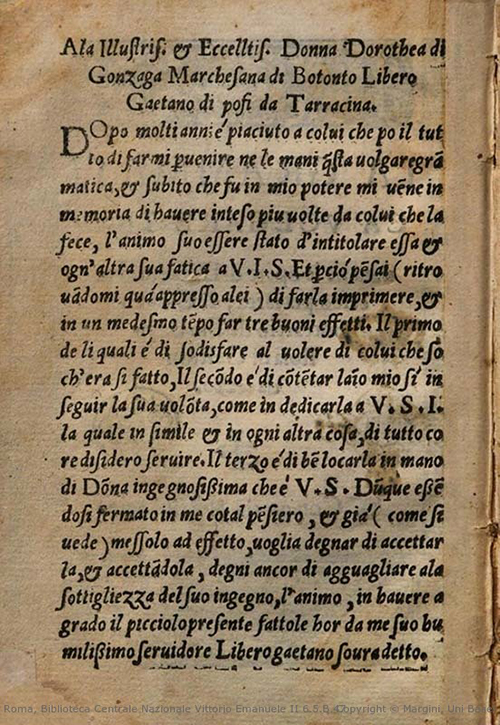 Ala Illustris. & Eccelltis. Donna Dorothea di
Gonzaga Marchesana di Botonto Libero
Gaetano di pofi da Tarracina.
DOpo molti anni é piaciuto a colui che po il tut
to di farmi ꝑuenire ne le mani q̃sta uolgare grã
matica, & subito che fu in mio potere mi uẽne in
memoria di hauere inteso piu uolte da colui che la
fece, l'animo suo essere stato d'intitolare essa &
ogn'altra sua fatica a V.I.S. Et ꝑció pẽsai (ritro
uãdomi quá appresso alei) di farla imprimere, &
in un medesmo tẽpo far tre buoni effetti. Il primo
de li quali é di sodisfare al uolere di colui che so
ch'era si fatto, Il secõdo e' di cõtẽtar laĩo mio sí in
seguir la sua uolõta, come in dedicarla a V.S.I.
la quale in simile & in ogni altra cosa, di tutto co
re disidero seruire. Il terzo e' di bẽ locarla in mano
di Dõna ingegnosißima che é V.S. Dũque essẽ
dosi fermato in me cotal pẽsiero, & giá (come si
uede) messolo ad effetto, uoglia degnar di accettar
la, & accettãdola, degni ancor di agguagliare ala
sottigliezza del suo ingegno, l'animo, in hauere a
grado il picciolo presente fattole hor da me suo hu
milißimo seruidore Libero gaetano souradetto.
Roma, Biblioteca Centrale Nazionale Vittorio Emanuele II 6.5.B. Copyright © Margini, Uni Base